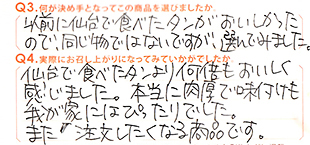 Q3.何が決め手となってこの商品を選びましたか
以前に仙台で食べたタンがおいしかった
ので、同じ物ではないですが、選んでみました。
Q4.実際にお召し上がりになってみていかがでしたか
仙台で食べたタンより何倍もおいしく
感じました。本当に肉厚で味付けも
我が家にはぴったりでした。
また〃注文したくなる商品です。